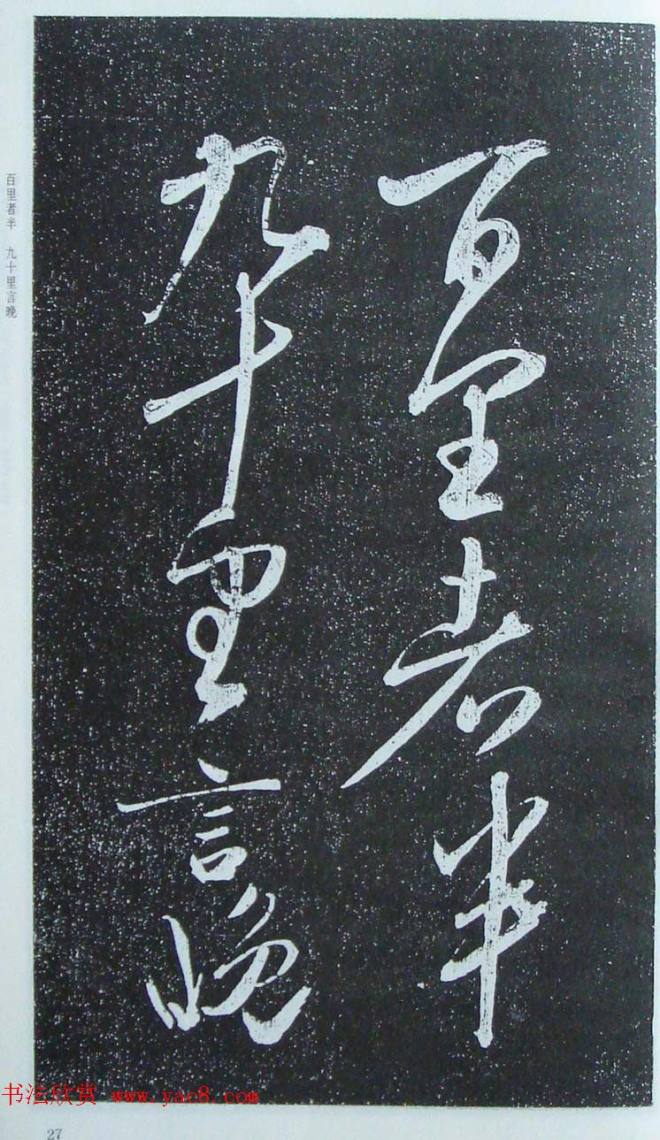 百里者半
九十里言晚
百里者半 九十里言晚
书法欣赏 www.yac8.com
27